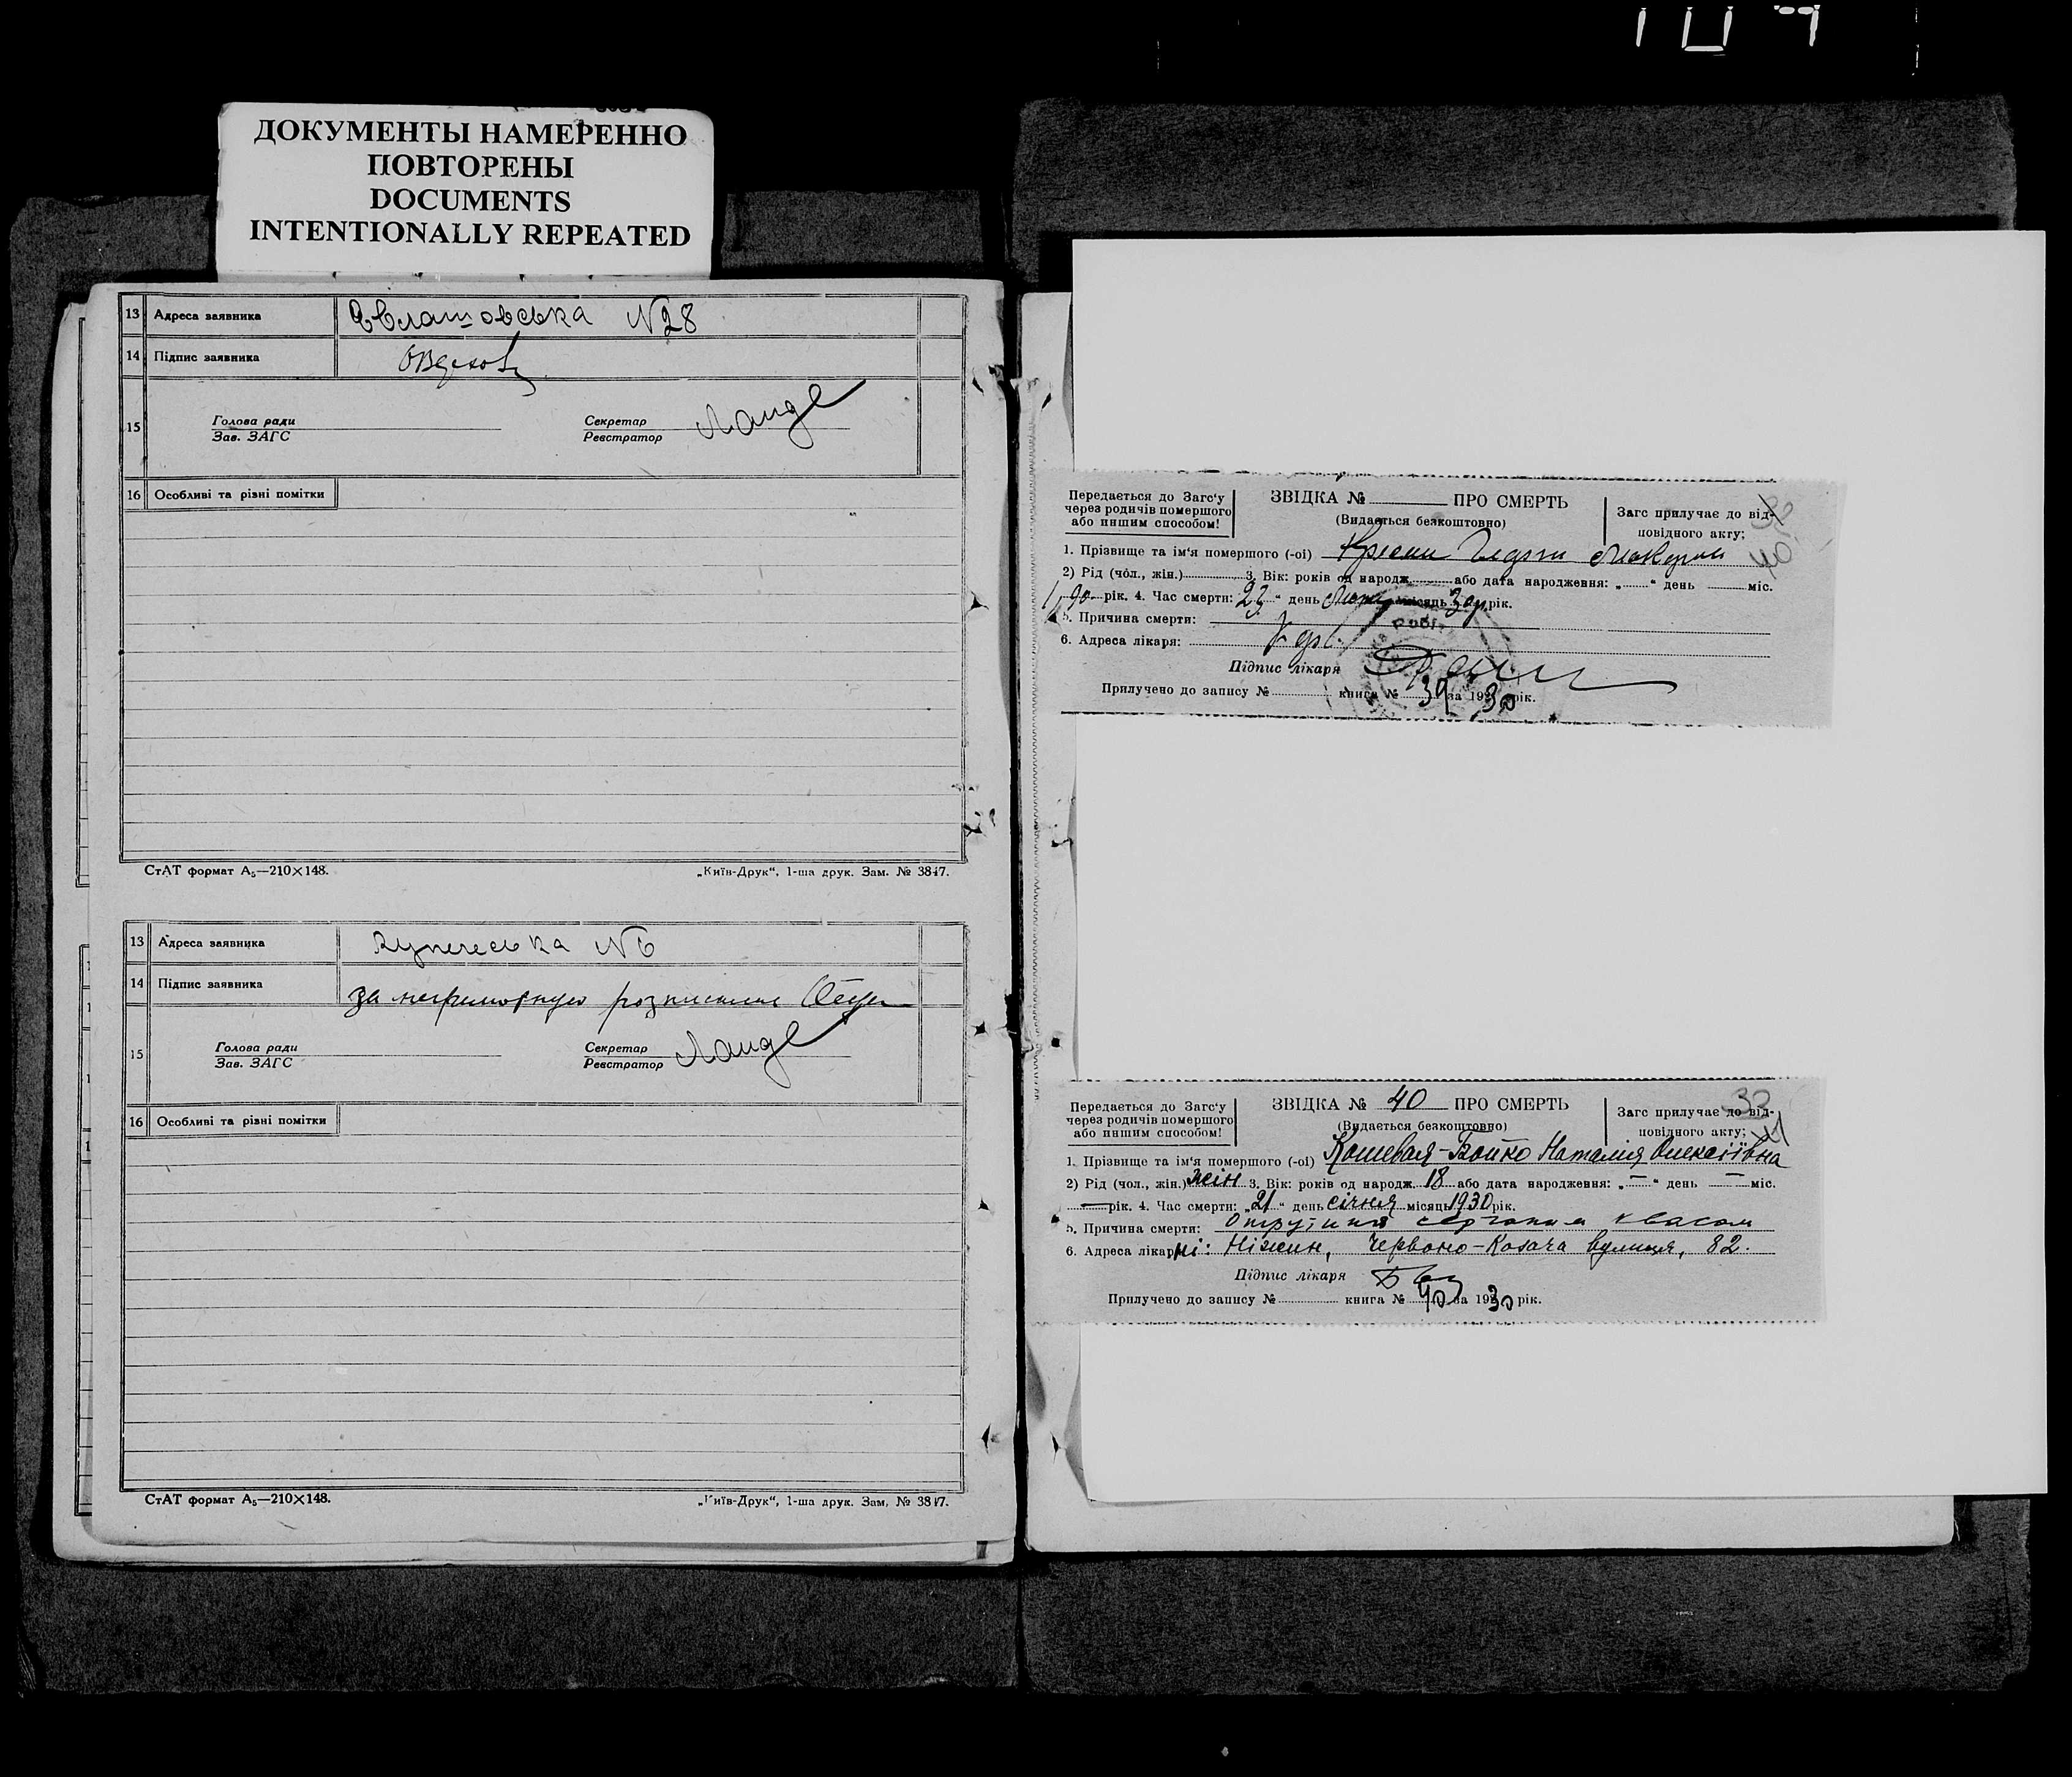 ДОКУМЕНТЫ НАМЕРЕННО
ПОВТОРЕНЫ
DOCUMENTS
INTENTIONALLY REPEATED
13 Адреса заявника Євлашовська №28
14 Підпис заявника
15 Голова ради
Зав. ЗАГС
Секретар
Реєстратор Ланде
16 Особливі та різні помітки
СтАТ формат А₅—210×148. „Київ-Друк“, 1-ша друк. Зам. № 3847.
13 Адреса заявника Купечеська №6
14 Підпис заявника за неграмотную
15 Голова ради
Зав. ЗАГС
Секретар
Реєстратор Ланде
16 Особливі та різні помітки
СтАТ формат А₅—210×148. „Київ-Друк“, 1-ша друк. Зам. № 3847.
Передається до Загс‘у
через родичів помершого
або иншим способом!
ЗВІДКА № ПРО СМЕРТЬ
(Видається безкоштовно)
Загс прилучає до від-
повідного акту;
40
1. Прізвище та ім‘я помершого (-ої)
2) Рід (чол., жін.) 3. Вік: років од народж. або дата народження: „ “ день міс.
рік. 4. Час смерти: 23 “ день місяць 30 р. рік.
5. Причина смерти:
6. Адреса лікаря:
Підпис лікаря
Прилучено до запису № книга № 39 за 1930 рік.
Передається до Загс‘у
через родичів помершого
або иншим способом!
ЗВІДКА № 40 ПРО СМЕРТЬ
(Видається безкоштовно)
Загс прилучає до від-
повідного акту; 41
1. Прізвище та ім‘я помершого (-ої) Кошевая-Бойко Наталия Олексіївна
2) Рід (чол., жін.) жін 3. Вік: років од народж. 18 або дата народження: „—“ день — міс.
— рік. 4. Час смерти: „21“ день січня місяць 1930 рік.
5. Причина смерти: квасом
6. Адреса лікарні: Ніжин, Червоно-Козача вулиця, 82.
Підпис лікаря
Прилучено до запису № книга № 40 за 1930 рік.